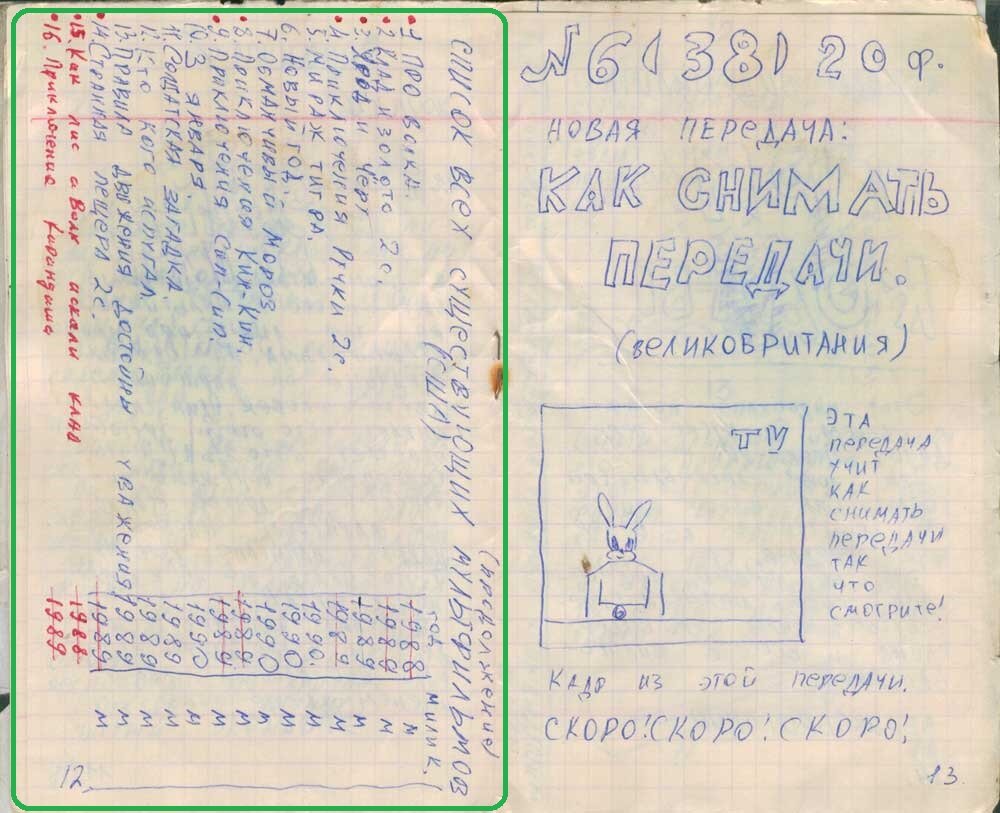 (продолжение)
СПИСОК ВСЕХ СУЩЕСТВУЮЩИХ МУЛЬТФИЛЬМОВ
(США)
ГОД. М или К.
1. ПРО Волка. 1988 М
2. Клад и золото 2с. 1989 М
3. и черт 1989 М
4. Приключения Ички 2с. 1989 М
5. МИРАЖ ТИГРА. 1990. М
6. Новый год. 1990 М
7. Обманчивый Мороз 1990 М
8. Приключения Киж-Кин. 1989 М
9. Приключения Сип-Сип. 1989
10. 3 января. 1990 М
11. Солдатская загадка. 1989
12. Кто кого испугал. 1989 М
13. Правила движения достойны уважения! 1989 М
14. Странная пещера 2с. 1989 М
15. Как лис и Волк искали клад 1988
16. Приключение Карандаша. 1989
12
№6(38) 20ф.
НОВАЯ ПЕРЕДАЧА:
КАК СНИМАТЬ
ПЕРЕДАЧИ.
(ВЕЛИКОБРИТАНИЯ)
TV
6
ЭТА
ПЕРЕДАЧА
УЧИТ
КАК
СНИМАТЬ
ПЕРЕДАЧИ
ТАК
ЧТО
СМОТРИТЕ!
КАДР ИЗ ЭТОЙ ПЕРЕДАЧИ.
СКОРО! СКОРО! СКОРО!
13.